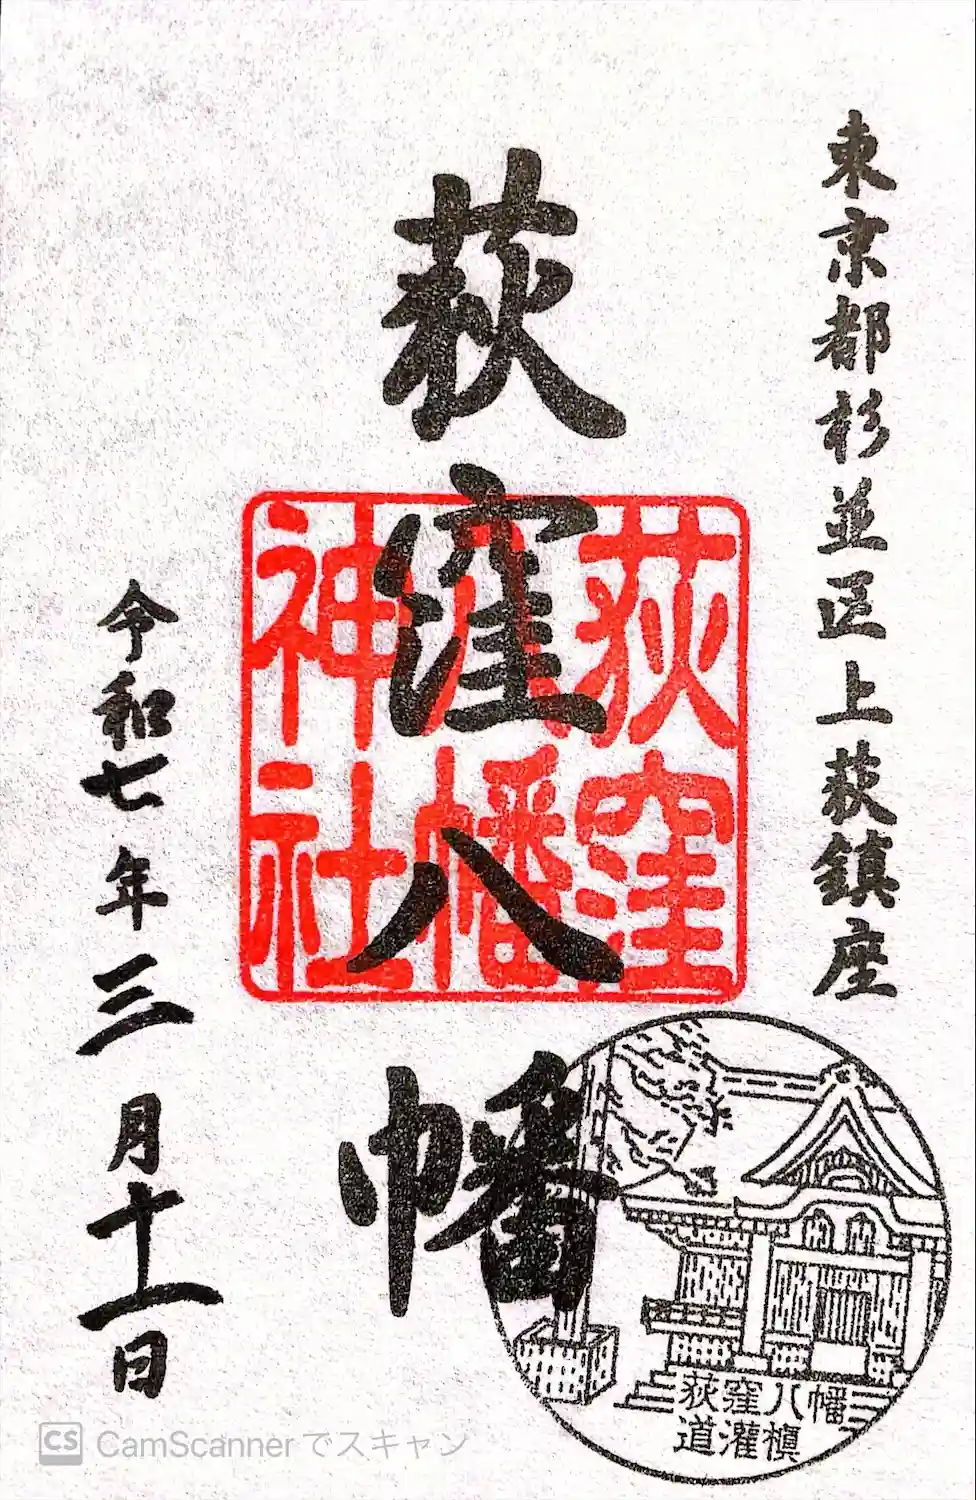 東京都杉並区上荻鎮座
荻窪八幡
荻窪
八幡
神社
令和七年三月十一日
荻窪八幡
道灌槇
CS CamScanner でスキャン